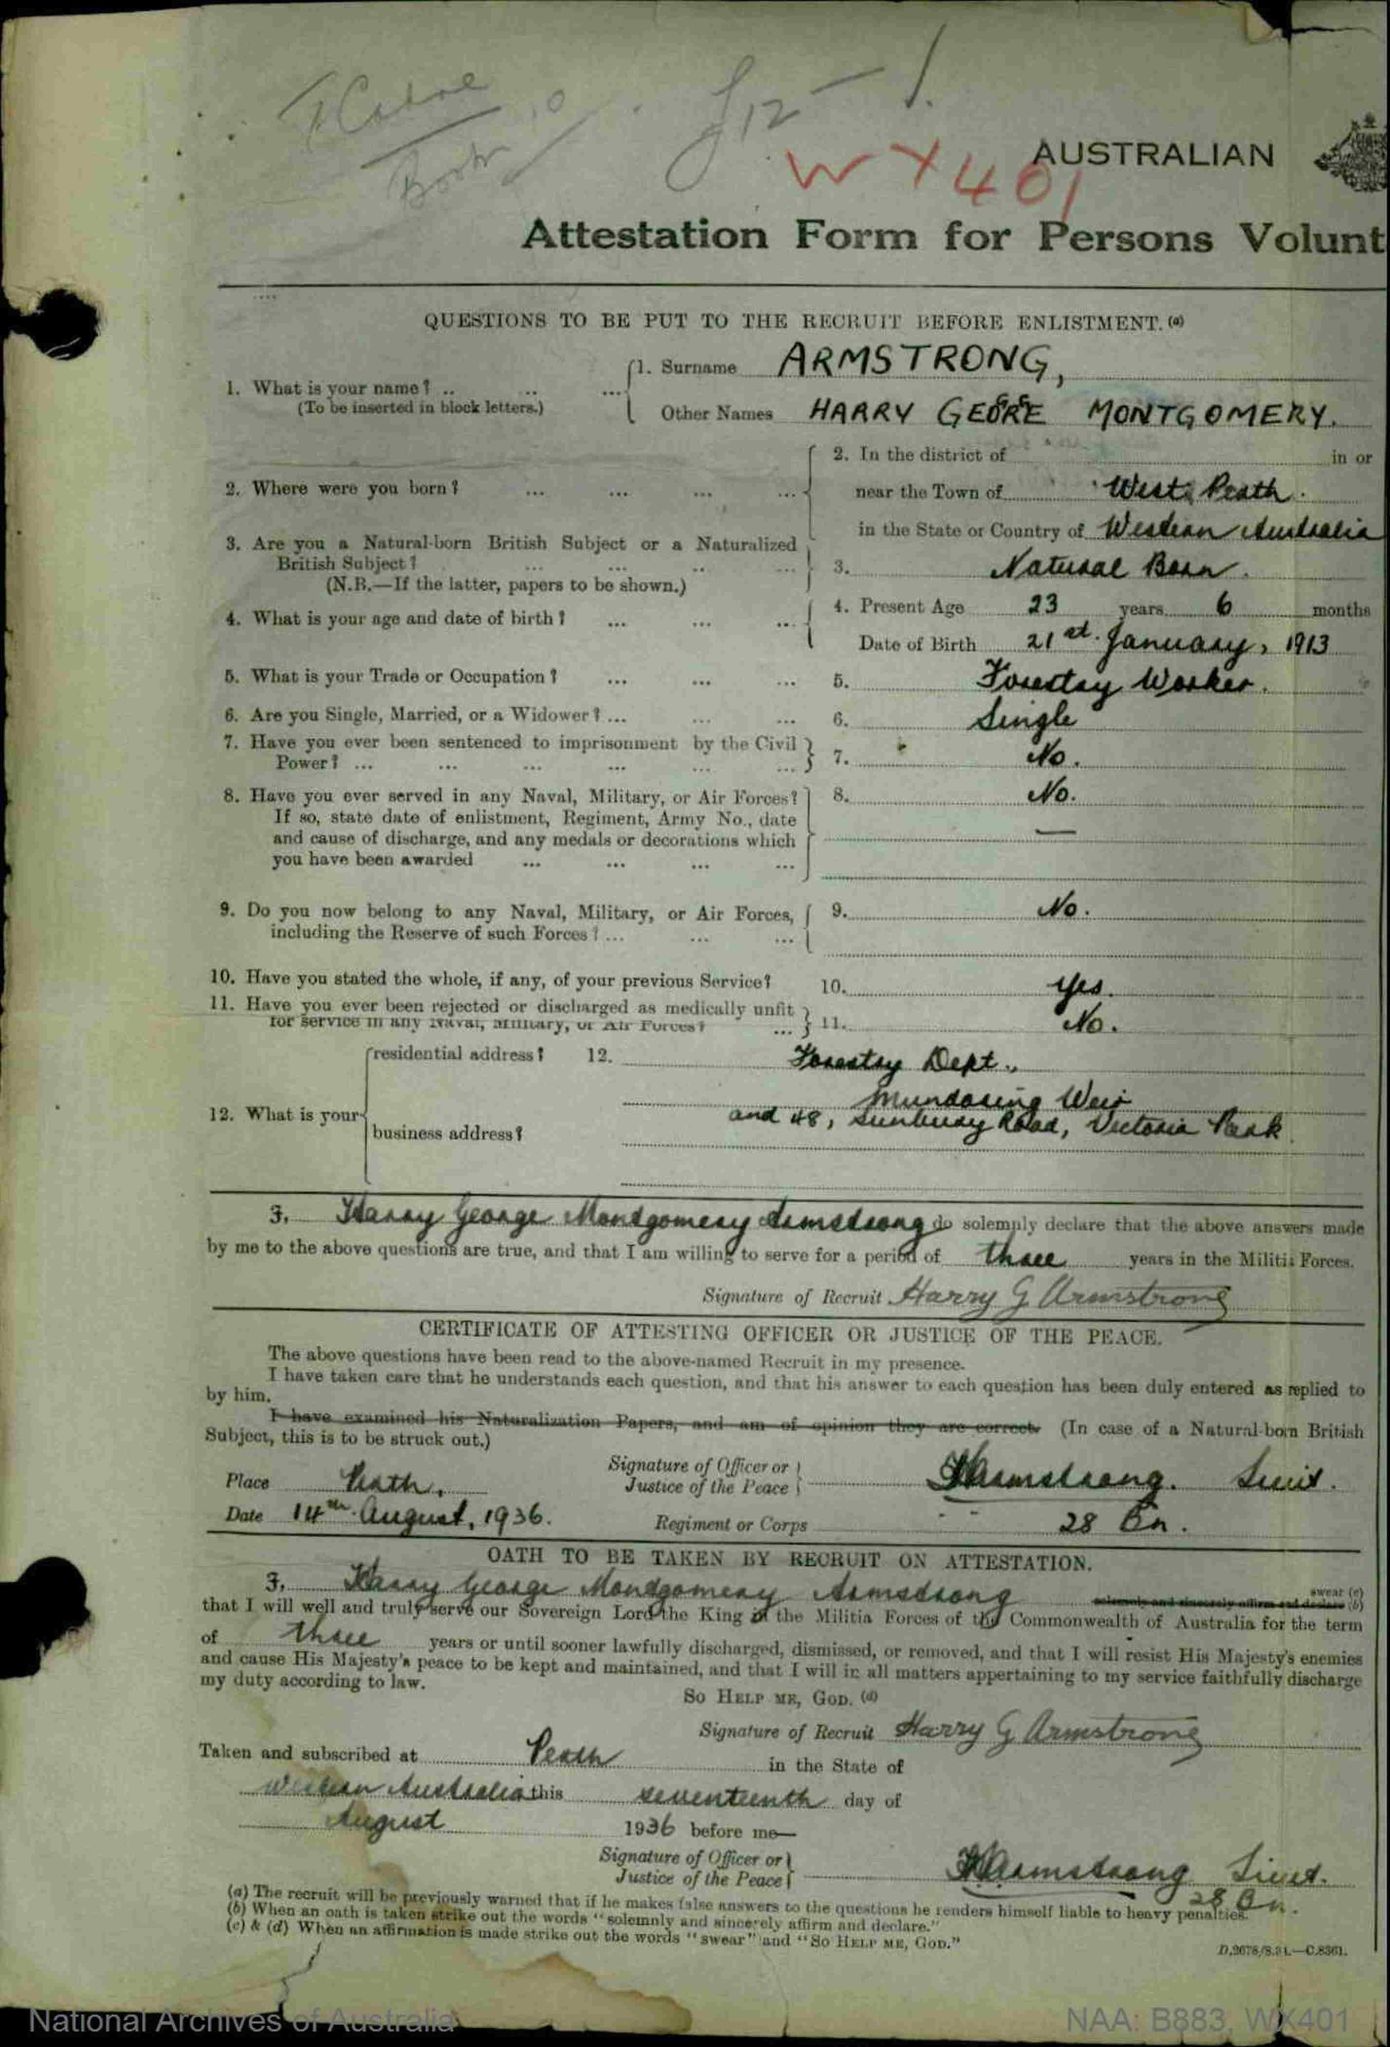 12 - 1.
WX401
AUSTRALIAN
Attestation Form for Persons Volunt
QUESTIONS TO BE PUT TO THE RECRUIT BEFORE ENLISTMENT.(a)
1. What is your name? .. .. ... 1. Surname ARMSTRONG,
(To be inserted in block letters.) Other Names HARRY GEORGE MONTGOMERY.
2. Where were you born? ... ... ... ... 2. In the district of in or
near the Town of West Perth.
in the State or Country of Western Australia
3. Are you a Natural-born British Subject or a Naturalized
British Subject? ... ... .. ... 3. Natural Born.
(N.B.—If the latter, papers to be shown.)
4. What is your age and date of birth? ... ... ... 4. Present Age 23 years 6 months
Date of Birth 21st. January, 1913
5. What is your Trade or Occupation? ... ... ... 5. Forestry Worker.
6. Are you Single, Married, or a Widower? ... ... ... 6. Single
7. Have you ever been sentenced to imprisonment by the Civil
Power? ... ... ... ... ... ... 7. No.
8. Have you ever served in any Naval, Military, or Air Forces? 8. No.
If so, state date of enlistment, Regiment, Army No., date
and cause of discharge, and any medals or decorations which —
you have been awarded ... ... ... ...
9. Do you now belong to any Naval, Military, or Air Forces, 9. No.
including the Reserve of such Forces? ... ... ...
10. Have you stated the whole, if any, of your previous Service? 10. Yes.
11. Have you ever been rejected or discharged as medically unfit
for service in any Naval, Military, or Air Forces? ... 11. No.
residential address? 12. Forestry Dept.,
Mundaring Weir
12. What is your and 48, Sunbury Road, Victoria Park
business address?
I, Harry George Montgomery Armstrong do solemnly declare that the above answers made
by me to the above questions are true, and that I am willing to serve for a period of three years in the Militia Forces.
Signature of Recruit Harry G Armstrong
CERTIFICATE OF ATTESTING OFFICER OR JUSTICE OF THE PEACE.
The above questions have been read to the above-named Recruit in my presence.
I have taken care that he understands each question, and that his answer to each question has been duly entered as replied to
by him.
I have examined his Naturalization Papers, and am of opinion they are correct. (In case of a Natural-born British
Subject, this is to be struck out.)
Signature of Officer or
Justice of the Peace Armstrong. Lieut.
Place Perth.
Date 14th August, 1936. Regiment or Corps 28 Bn.
OATH TO BE TAKEN BY RECRUIT ON ATTESTATION.
I, Harry George Montgomery Armstrong swear (c)
solemnly and sincerely affirm and declare (b)
that I will well and truly serve our Sovereign Lord the King in the Militia Forces of the Commonwealth of Australia for the term
of three years or until sooner lawfully discharged, dismissed, or removed, and that I will resist His Majesty's enemies
and cause His Majesty's peace to be kept and maintained, and that I will in all matters appertaining to my service faithfully discharge
my duty according to law.
SO HELP ME, GOD. (d)
Signature of Recruit Harry G Armstrong
Taken and subscribed at Perth in the State of
Western Australia this seventeenth day of
August 1936 before me—
Signature of Officer or
Justice of the Peace Armstrong Lieut.
28 Bn.
(a) The recruit will be previously warned that if he makes false answers to the questions he renders himself liable to heavy penalties.
(b) When an oath is taken strike out the words "solemnly and sincerely affirm and declare."
(c) & (d) When an affirmation is made strike out the words "swear" and "SO HELP ME, GOD."
D.2678/8.31.—C.8361.
National Archives of Australia
NAA: B883, WX401